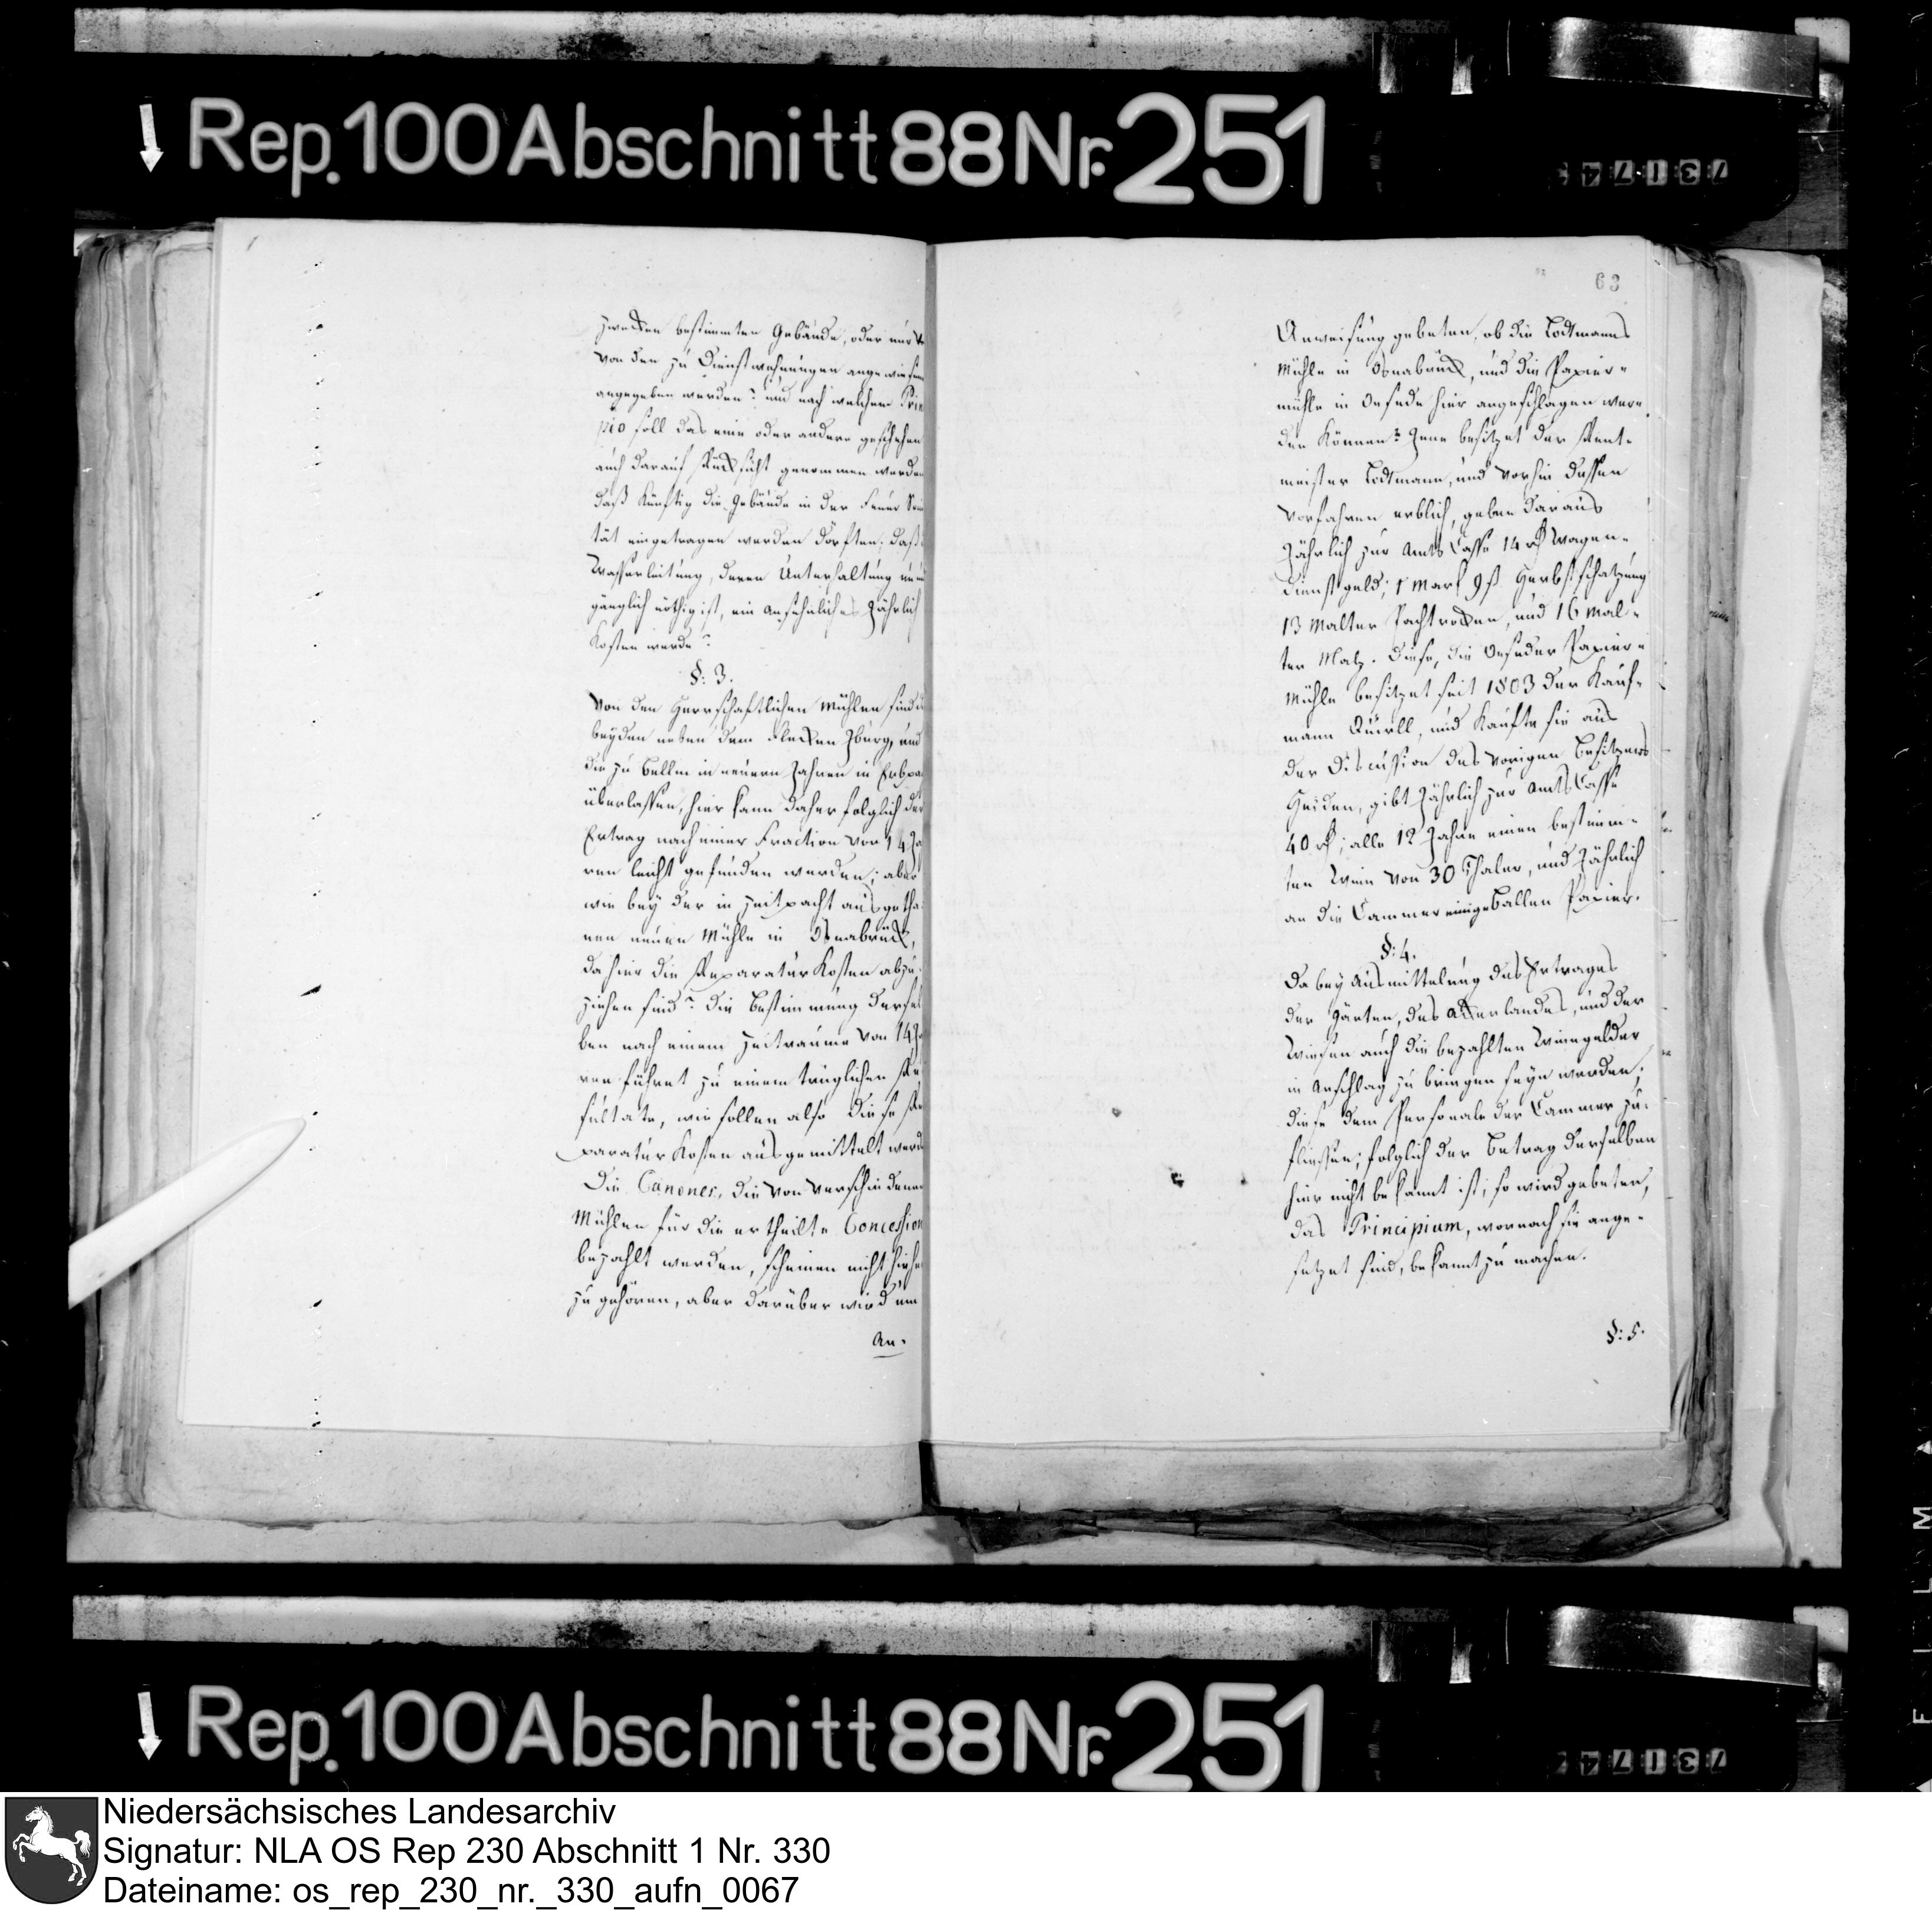 Rep. 100 Abschnitt 88 Nr. 251
zwecken bestimmten Gebäude, oder nur
von den zu Dienstwohnungen angewiesen
angegeben werden? und nach welchem Prin
pio soll das eine oder andere geschehen
auch darauf Rücksicht genommen werden
daß künftig die Gebäude in der Feuer
tät eingetragen werden dorften; daß
Wasserleitung, deren Unterhaltung
gänglich nöthig ist, ein ansehnliches Jährlich
kosten werde?
§: 3.
Von den Herrschaftlichen Mühlen sind
beyden neben dem Flecken Iburg, und
die zu Bellm in neuern Jahren in Erbpa
überlassen, hier kann daher folglich der
Ertrag nach einer Fraction von 14 Ja
ren leicht gefunden werden; aber
wie bey der in Zeitpacht ausgetha-
nen neuen Mühle in Osnabrück,
da hier die Reparatur Kosten abzu-
ziehen sind? die Bestimmung dersel
ben nach einem Zeitraume von 14 Ja
ren führet zu einem trüglichen Re
sultate, wie sollen also diese Re
paratur Kosten ausgemittelt werd
Die Canones, die von verschiedenen
Mühlen für die ertheilte Concession
bezahlt werden, scheinen nicht hiehe
zu gehören, aber darüber wird um
An-
63
Anweisung gebeten, ob die Lodtmanns
Mühle in Osnabrück, und die Papier-
mühle in Oesede hier angeschlagen wer-
den können? Jene besitzet der Rent-
meister Lodtmann, und vorhin dessen
Vorfahren erblich, geben daraus
Jährlich zur Amts Casse 14 rth Wagen-
Dienstgeld; 1 Mark 9 ß Herbstschatzung
13 Malter Pachtrocken, und 16 Mal-
ter Malz. Diese, die Oeseder Papier-
Mühle besitzet seit 1803 der Kauf-
mann Quirll, und kaufte sie aus
der Discussion des vorigen Besitzers
Heiden, gibt Jährlich zur Amts Casse
40 rth; alle 12 Jahre einen bestimm-
ten Wein von 30 Thaler, und Jährlich
an die Cammer einige Ballen Papier.
§: 4.
Da bey Ausmittelung des Ertrages
der Gärten, des Ackerlandes, und der
Wiesen auch die bezahlten Weingelder
in Anschlag zu bringen seyn werden;
diese dem Personale der Cammer zu-
fliessen; folglich der Betrag derselben
hier nicht bekannt ist; so wird gebeten,
das Principium, wornach sie ange-
setzet sind, bekannt zu machen.
§: 5.
Rep. 100 Abschnitt 88 Nr. 251
Niedersächsisches Landesarchiv
Signatur: NLA OS Rep 230 Abschnitt 1 Nr. 330
Dateiname: os_rep_230_nr._330_aufn_0067